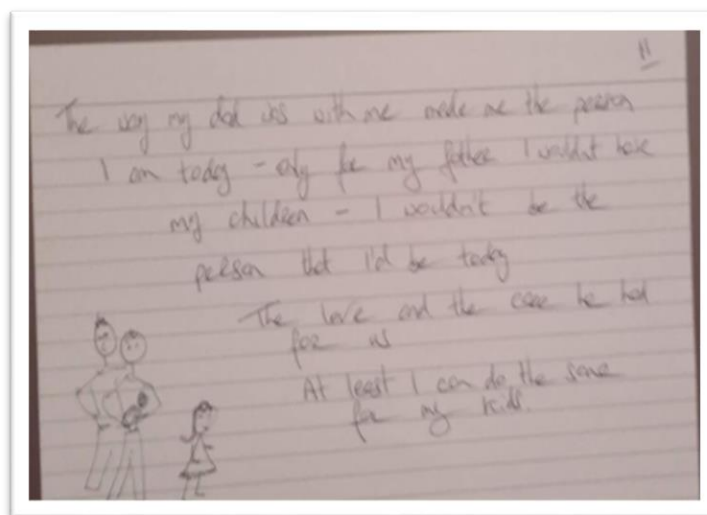 11
The way my dad was with me made me the person
I am today - only for my father I wouldn't have
my children - I wouldn't be the
person that I'd be today
The love and the care he had
for us
At least I can do the same
for my kids.